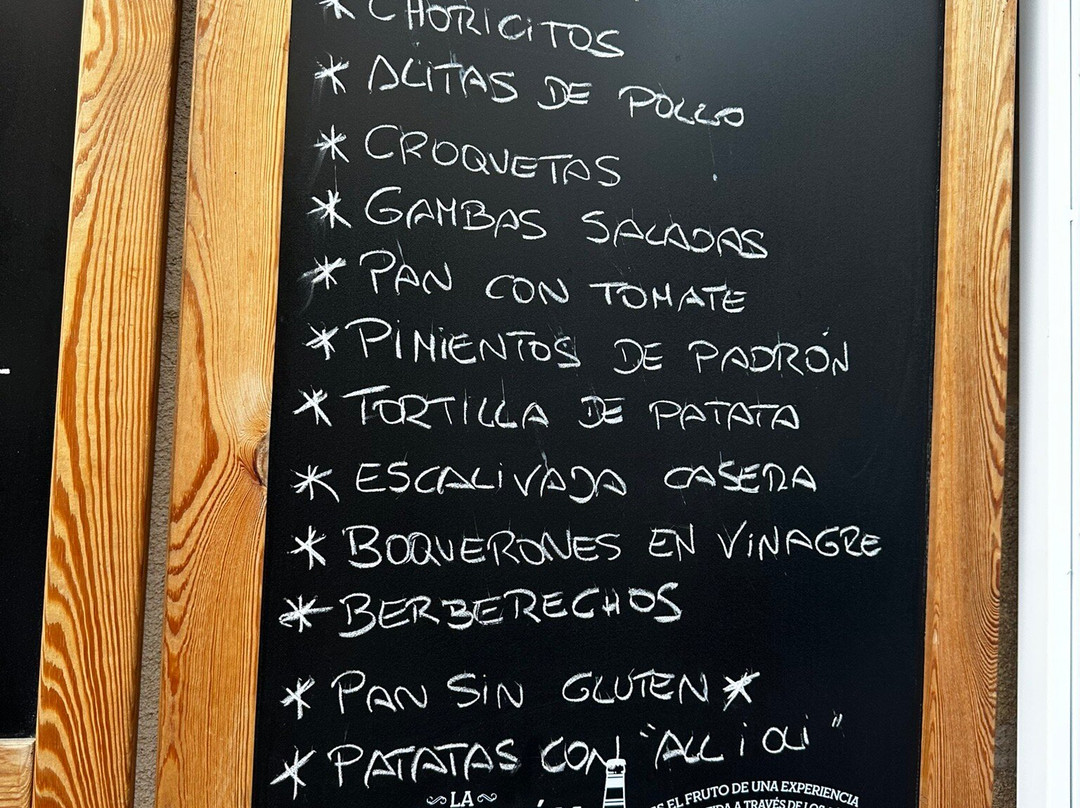 * CHORICITOS
* ALITAS DE POLLO
* CROQUETAS
* GAMBAS SALADAS
* PAN CON TOMATE
* PIMIENTOS DE PADRÓN
* TORTILLA DE PATATA
* ESCALIVADA CASERA
* BOQUERONES EN VINAGRE
* BERBERECHOS
* PAN SIN GLUTEN *
* PATATAS CON "ALL i OLi"
LA
ES EL FRUTO DE UNA EXPERIENCIA
A TRAVÉS DE LOS